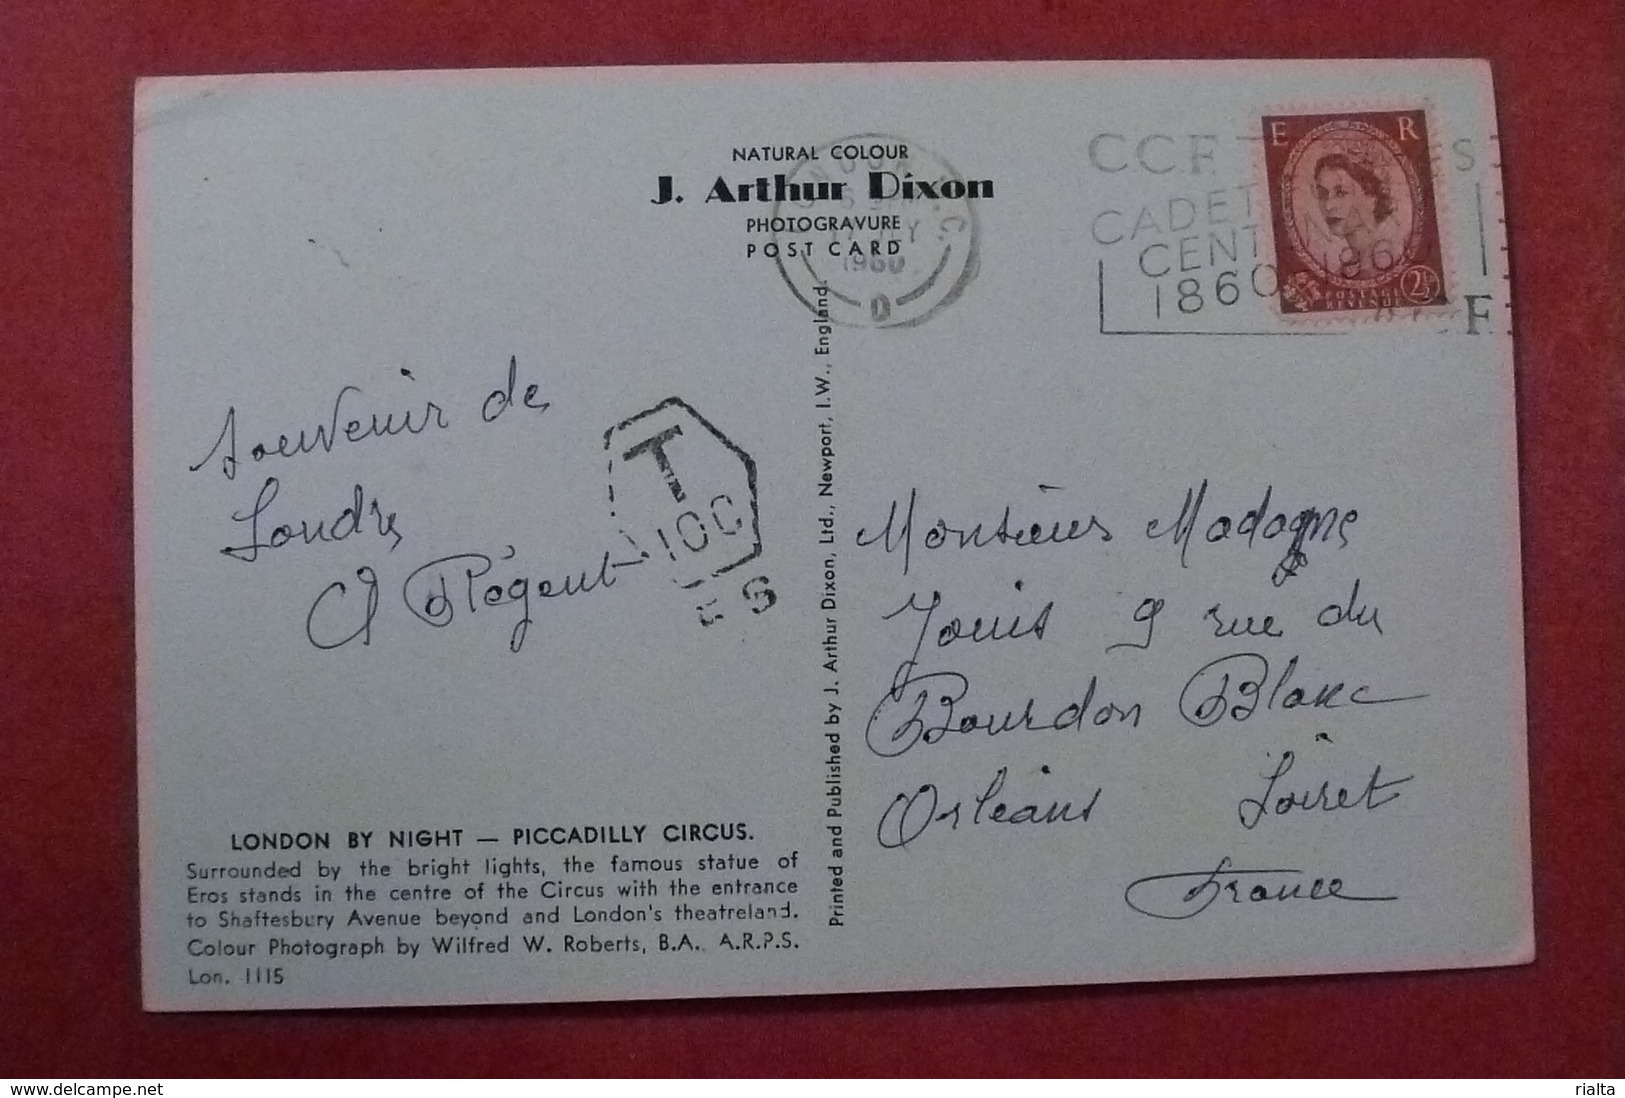 NATURAL COLOUR
J. Arthur Dixon
PHOTOGRAVURE
POST CARD
1960
D
CCF
S
CADET
CENT
1860 186
F
E R
POSTAGE
REVENUE
2½
Souvenir de
Londres
Régent
T
10 C
Monsieur Madagne
Louis 9 rue du
Bourdon Blanc
Orléans Loiret
France
Printed and Published by J. Arthur Dixon, Ltd., Newport, I.W., England.
LONDON BY NIGHT — PICCADILLY CIRCUS.
Surrounded by the bright lights, the famous statue of
Eros stands in the centre of the Circus with the entrance
to Shaftesbury Avenue beyond and London's theatreland.
Colour Photograph by Wilfred W. Roberts, B.A., A.R.P.S.
Lon. 1115
www.delcampe.net
rialta